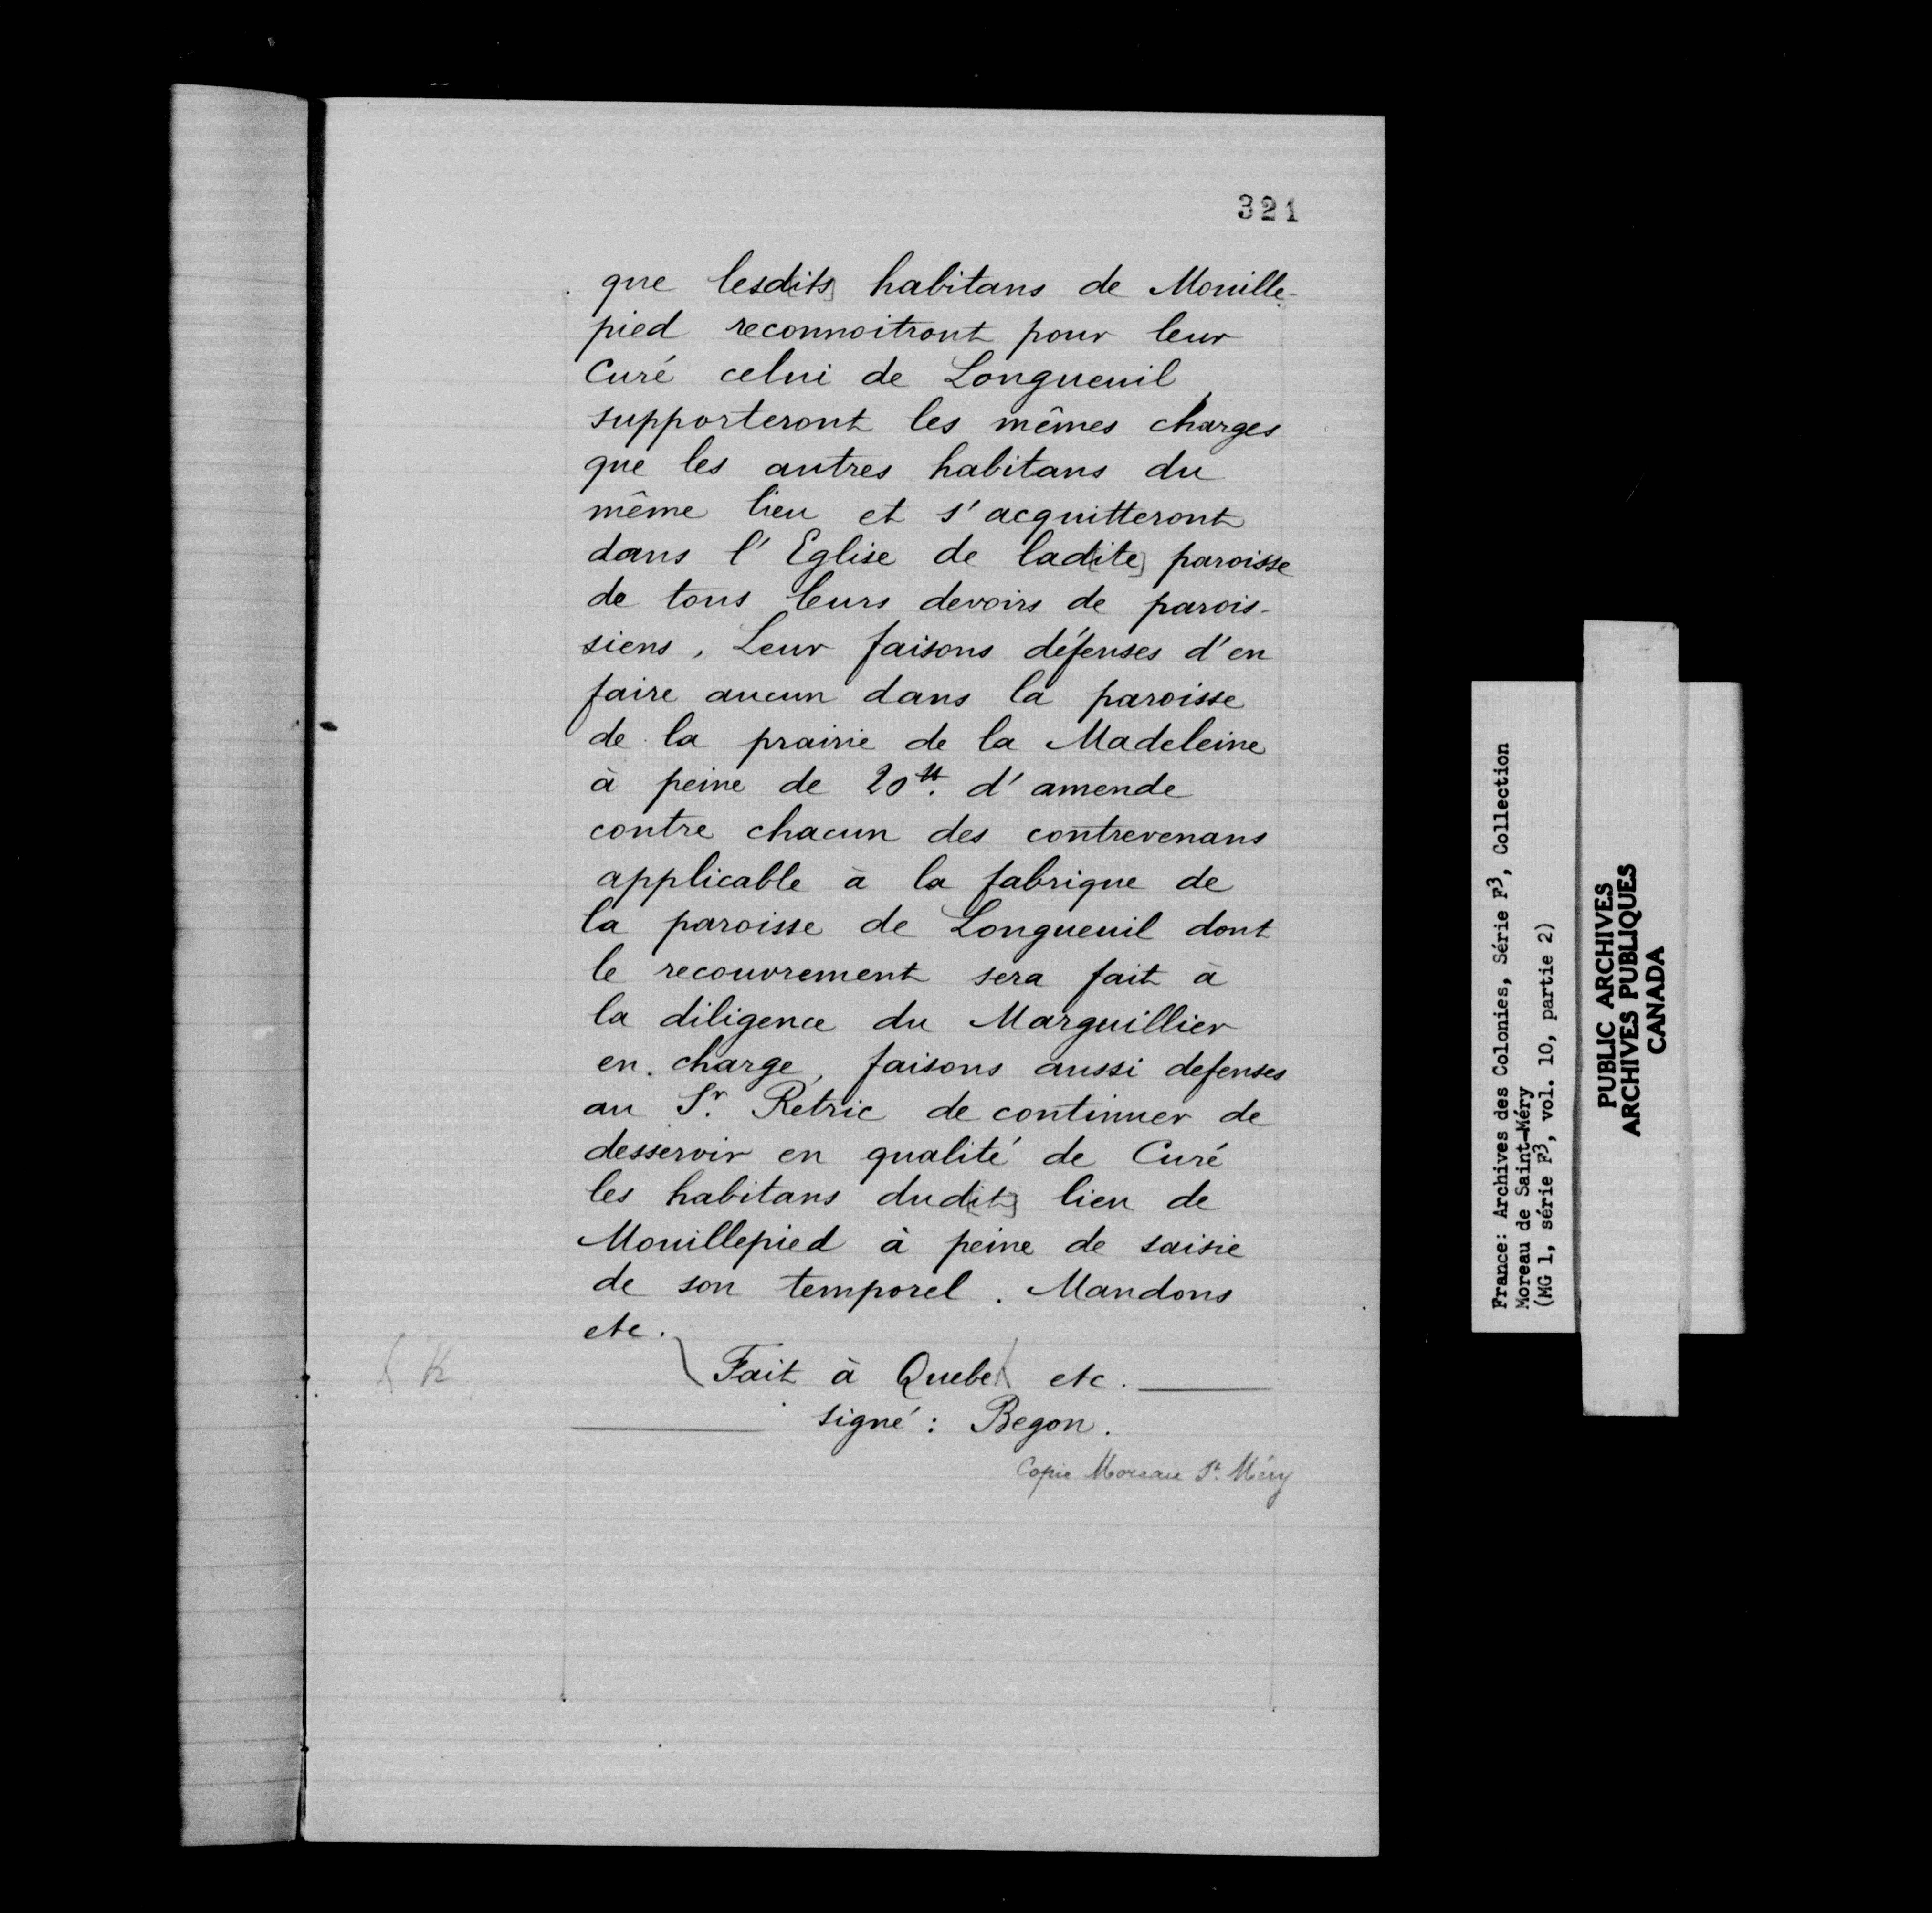 321
que lesd[its] habitans de Mouille-
pied reconnoitront pour leur
Curé celui de Longueuil,
supporteront les mêmes charges
que les autres habitans du
même lieu et s'acquitteront
dans l'Eglise de lad[ite] paroisse
de tous leurs devoirs de parois-
siens, Leur faisons défenses d'en
faire aucun dans la paroisse
de la prairie de la Madeleine
à peine de 20tt. d'amende
contre chacun des contrevenans
applicable à la fabrique de
la paroisse de Longueuil dont
le recouvrement sera fait à
la diligence du Marguillier
en charge, faisons aussi defenses
au Sr. Retric de continuer de
desservir en qualité de Curé
les habitans dud[it] lieu de
Mouillepied à peine de saisie
de son temporel. Mandons
etc.
Fait à Quebe etc.
signé: Begon.
Copie Moreau St. Méry
France: Archives des Colonies, Série F3, Collection
Moreau de Saint-Méry
(MG 1, série F3, vol. 10, partie 2)
PUBLIC ARCHIVES
ARCHIVES PUBLIQUES
CANADA